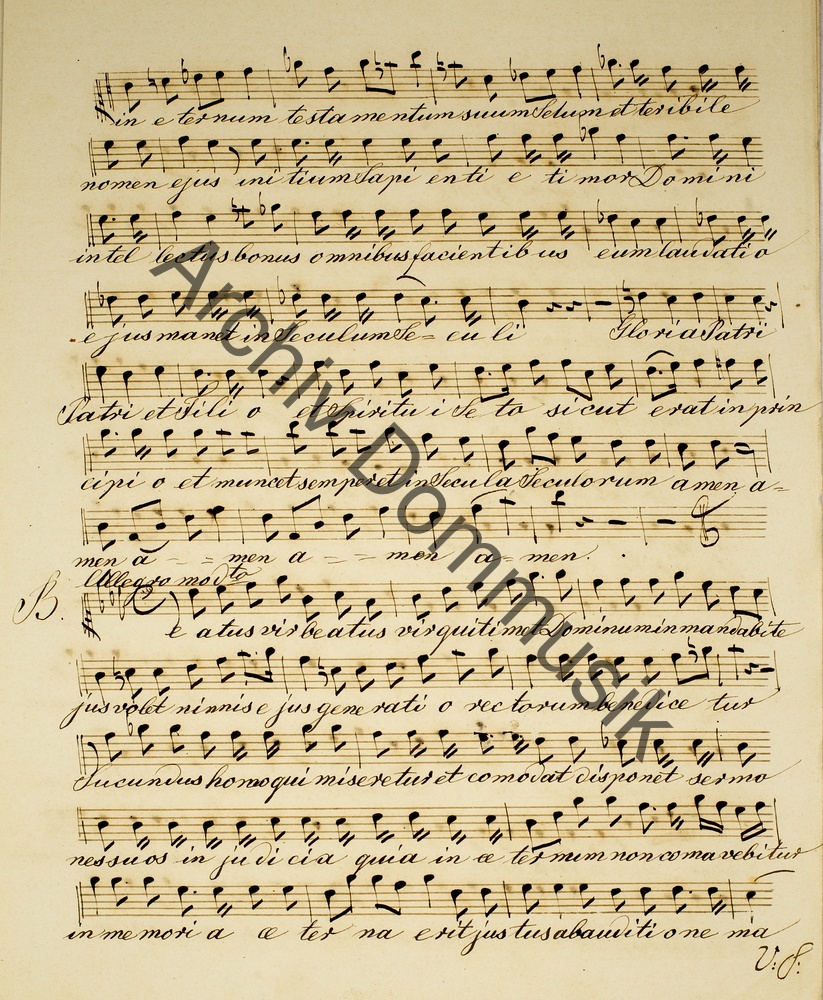 in e ternum testamentum suum Setum et teribile
nomen ejus ini tium Sapi enti e ti mor Do mi ni
intel lectus bonus omnibus facientib us eum laudati o
e jus manet in Seculum Se= cu li Gloria Patri
Patri et Fili o et Spiritu i Se to sicut erat in prin
cipi o et munc et semper et in Secula Seculorum amen a=
men a - = men a - = - men a - men.
Allegro modto
B. e atus vir beatus vir qui timet Dominum in mandabit e
jus volet nimis e jus gene rati o rectorum benedice tur
Jucundus homo qui miseretur et comodat disponet sermo
nes suos in judi ci a quia in æ ternum non comavebitur
in memori a æ ter na erit justus ab auditi one ma
V: S:
Archiv Dommusik